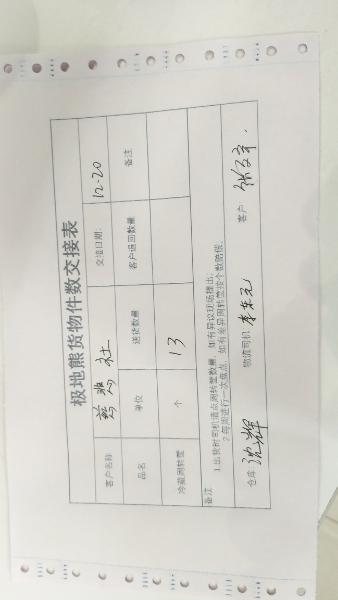 极地熊货物件数交接表
客户名称 交接日期: 12-20
品名 单位 送货数量 客户退回数量 备注
冷藏周转筐 个 13
备注
1.出货时司机清点周转筐数量,如有异议现场提出;
2.每周进行一次盘点,如有差异周转筐按个数赔偿。
仓库: 沈辉 物流司机: 李东元 客户: